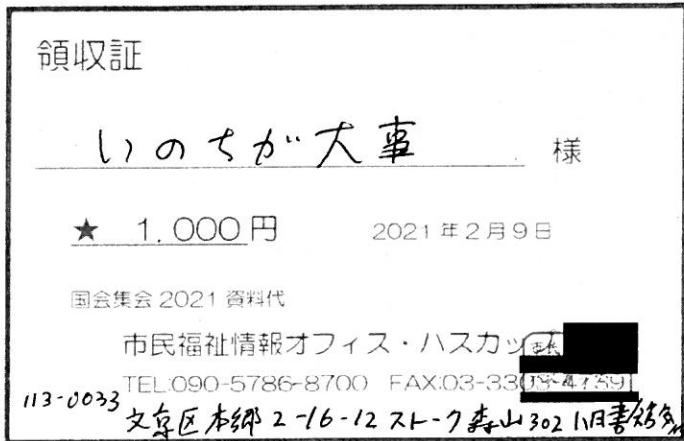 領収証
いのちが大事 様
★ 1.000円 2021年2月9日
国会集会2021資料代
市民福祉情報オフィス・ハスカッ
TEL:090-5786-8700 FAX:03-33
113-0033 文京区本郷2-16-12ストーク森山302